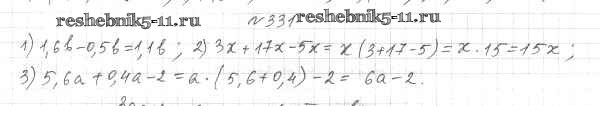 reshebnik5-11.ru №331 reshebnik5-11.ru
1) 1,6b-0,5b=1,1b ; 2) 3x+17x-5x= x(3+17-5)=x·15=15x ;
3) 5,6a+0,4a-2=a·(5,6+0,4)-2= 6a-2.